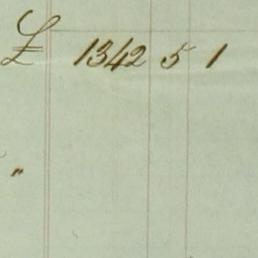 £ 1342 5 1
"